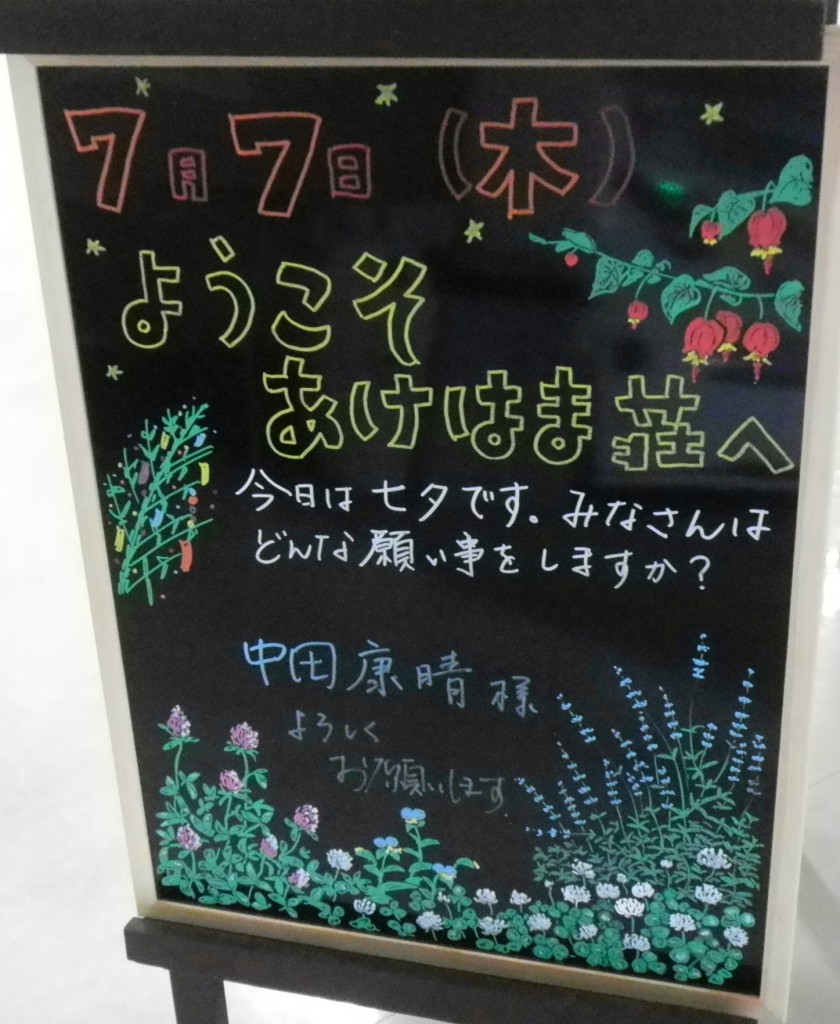 7月7日(木)
ようこそ
あけはま荘へ
今日は七夕です。みなさんは
どんな願い事をしますか?
中田康晴様
よろしく
お願いします